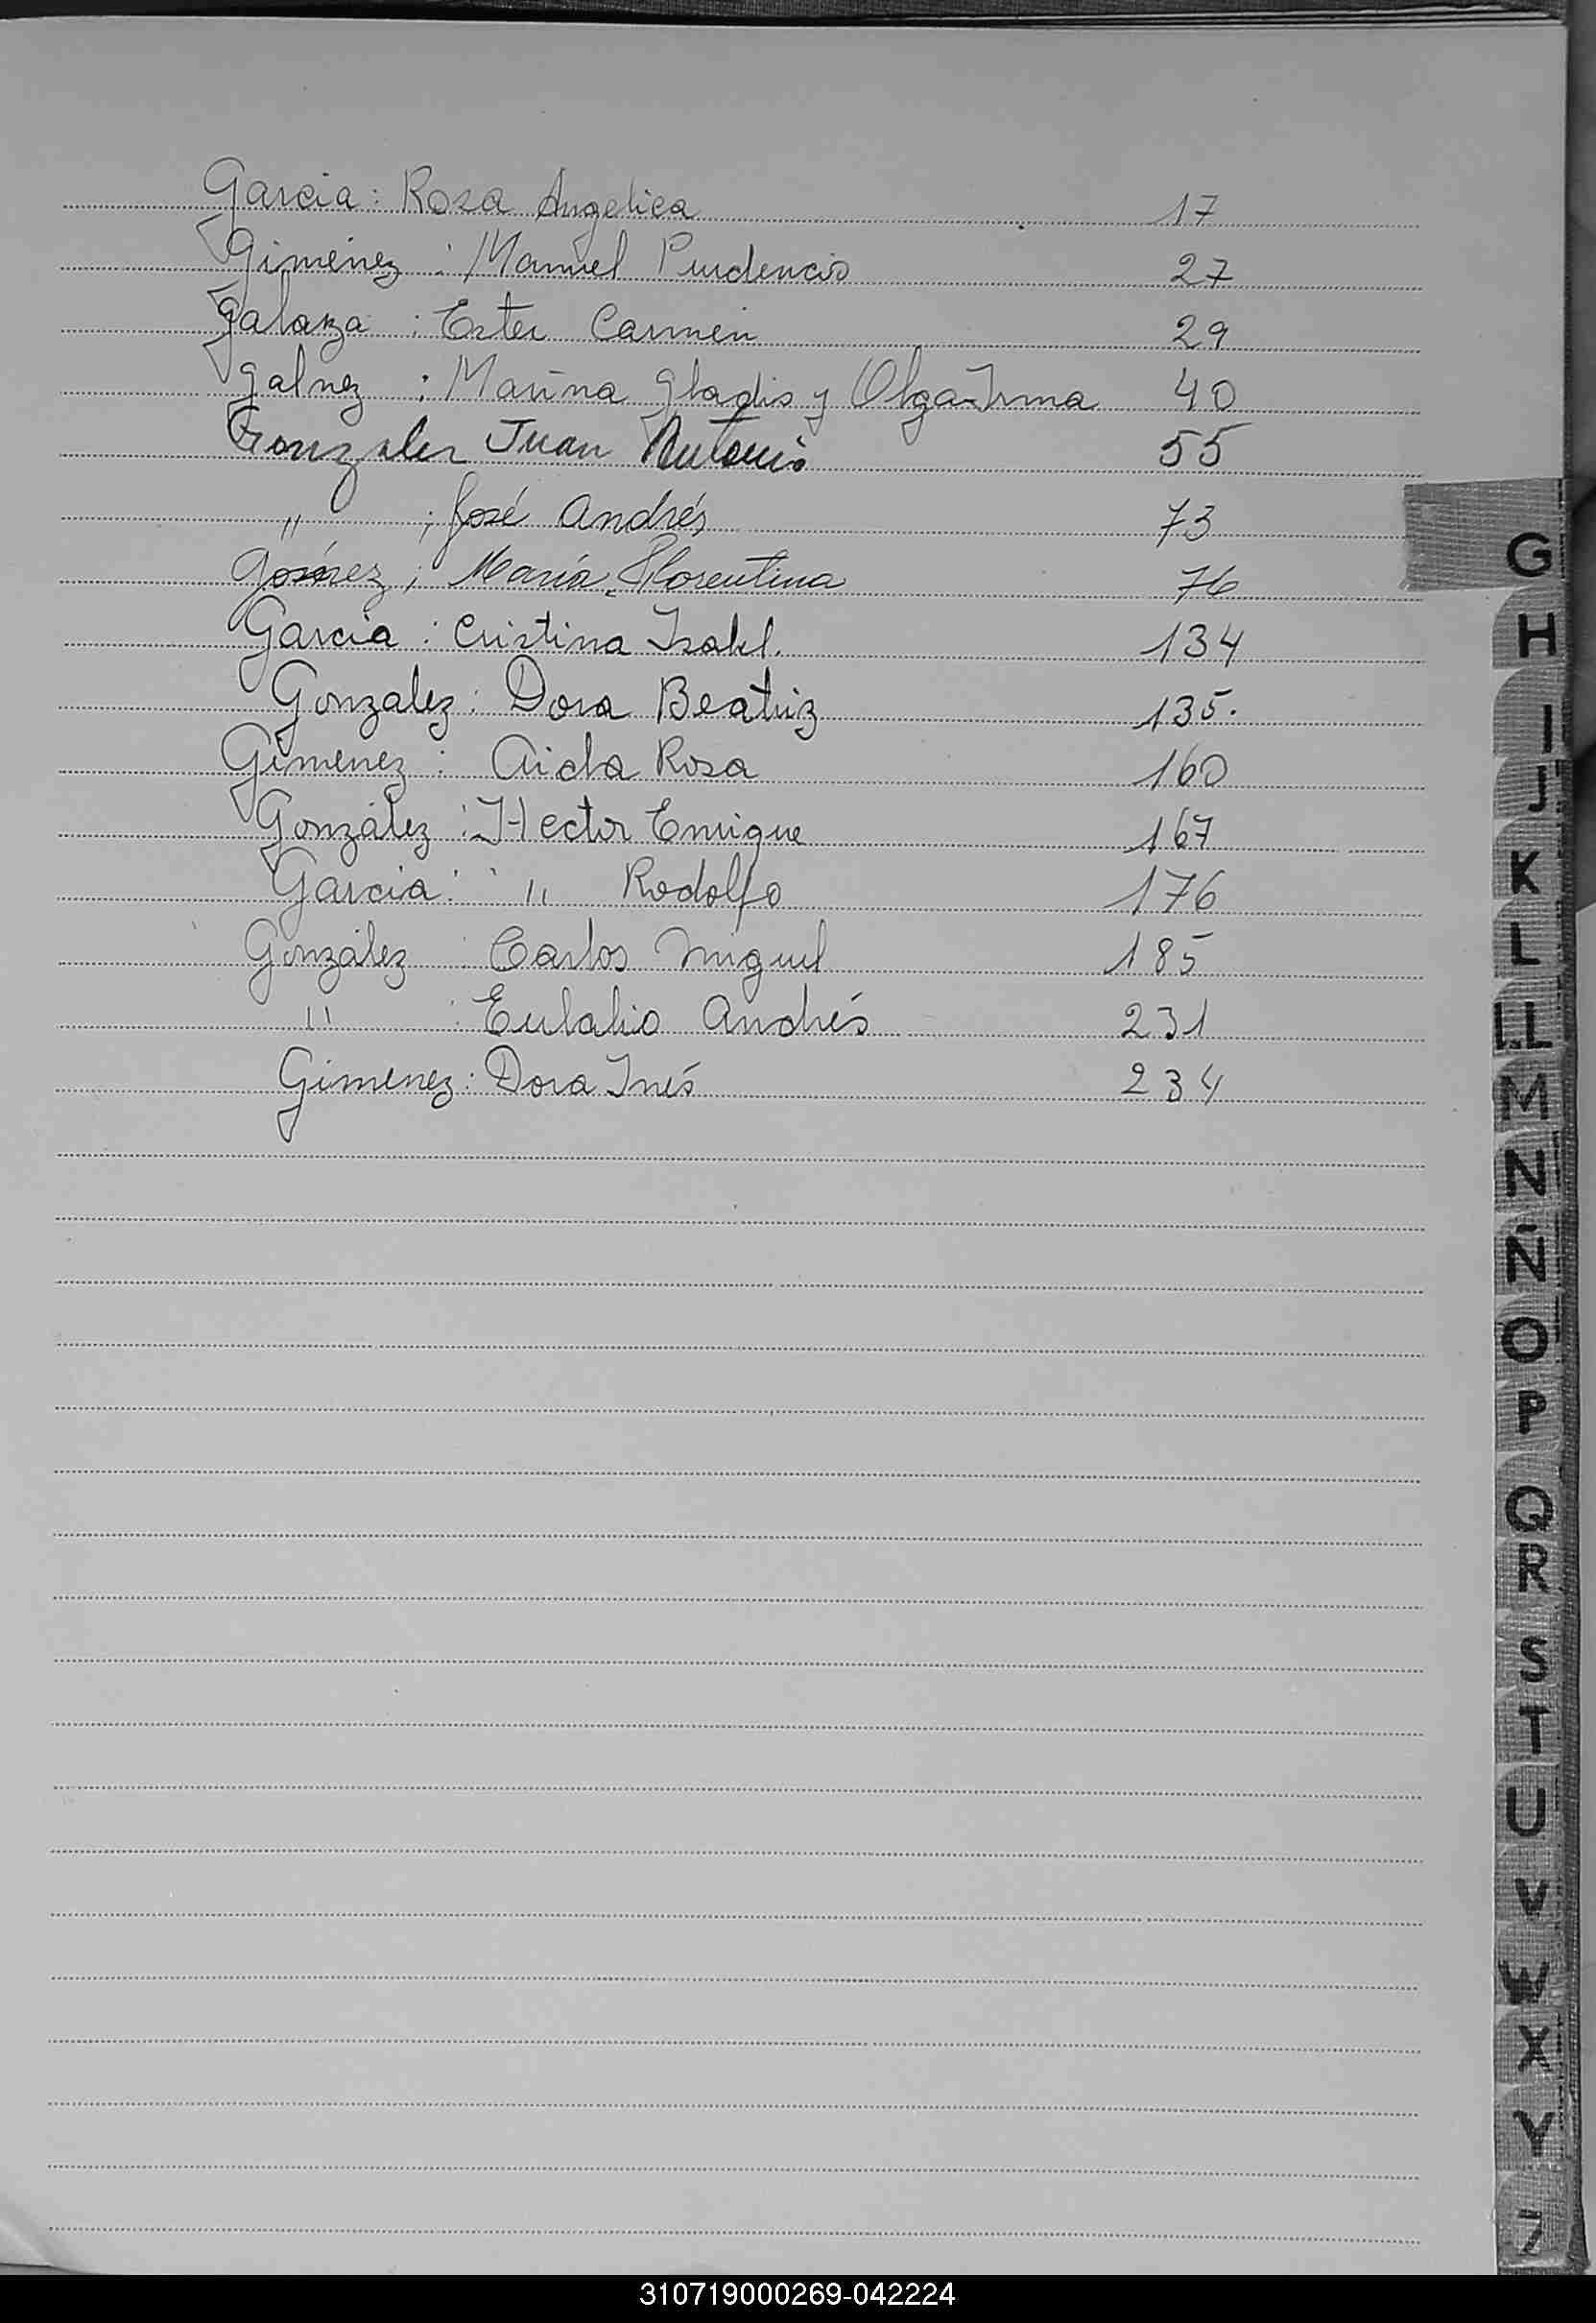 Garcia: Rosa Angelica 17
Gimenez : Manuel Prudencio 27
Galarza : Ester Carmen 29
Galnez : Marina Gladis y Olga Irma 40
Gonzalez Juan Antonio 55
" ; José Andrés 73
Gómez ; María Florentina 76
Garcia : Cristina Isabel. 134
Gonzalez : Dora Beatriz 135.
Gimenez : Aida Rosa 160
González : Hector Enrique 167
Garcia : " Rodolfo 176
González : Carlos Miguel 185
" : Eulalio Andrés 231
Gimenez : Dora Inés 234
G
H
I
J
K
L
LL
M
N
Ñ
O
P
Q
R
S
T
U
V
W
X
Y
Z
310719000269-042224